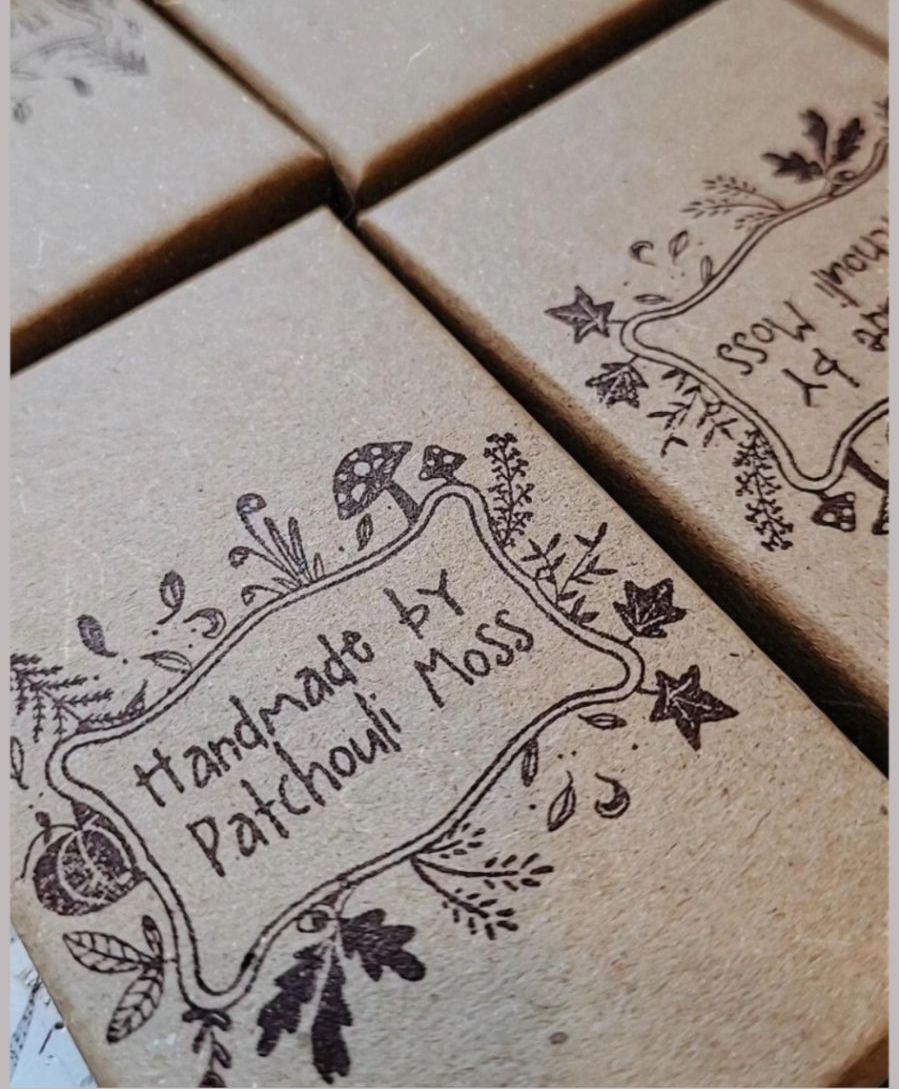 Handmade by
Patchouli Moss
chouli
Moss
by